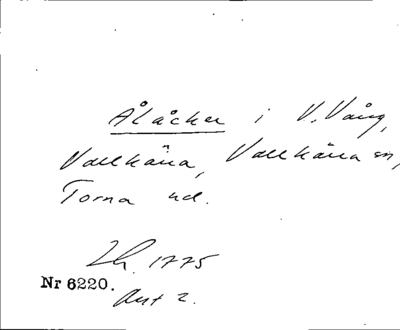 Åläcker i V. Vång,
Vallkärra, Vallkärra sn,
Torna hd.
Lh. 1775
Nr 6220.
Akt 2.